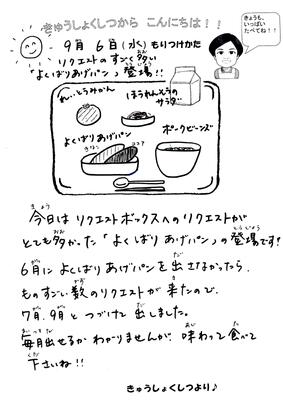 きゅうしょくしつから こんにちは！！
きょうも、
いっぱい
たべてね！！
9月 6日(水) もりつけかた
リクエストのすんごく多い
「よくばりあげパン」登場!!
れいとうみかん
ほうれんそうの
サラダ
よくばりあげパン
きなこ
ココア
ポークビーンズ
今日は リクエストボックスへの リクエストが
とても多かった「よくばりあげパン」の登場です!
6月に よくばりあげパンを 出さなかったら、
ものすごい数のリクエストが 来たので、
7月、9月と つづけて 出しました。
毎月出せるか わかりませんが、味わって食べて
下さいね!!
きゅうしょくしつより♪